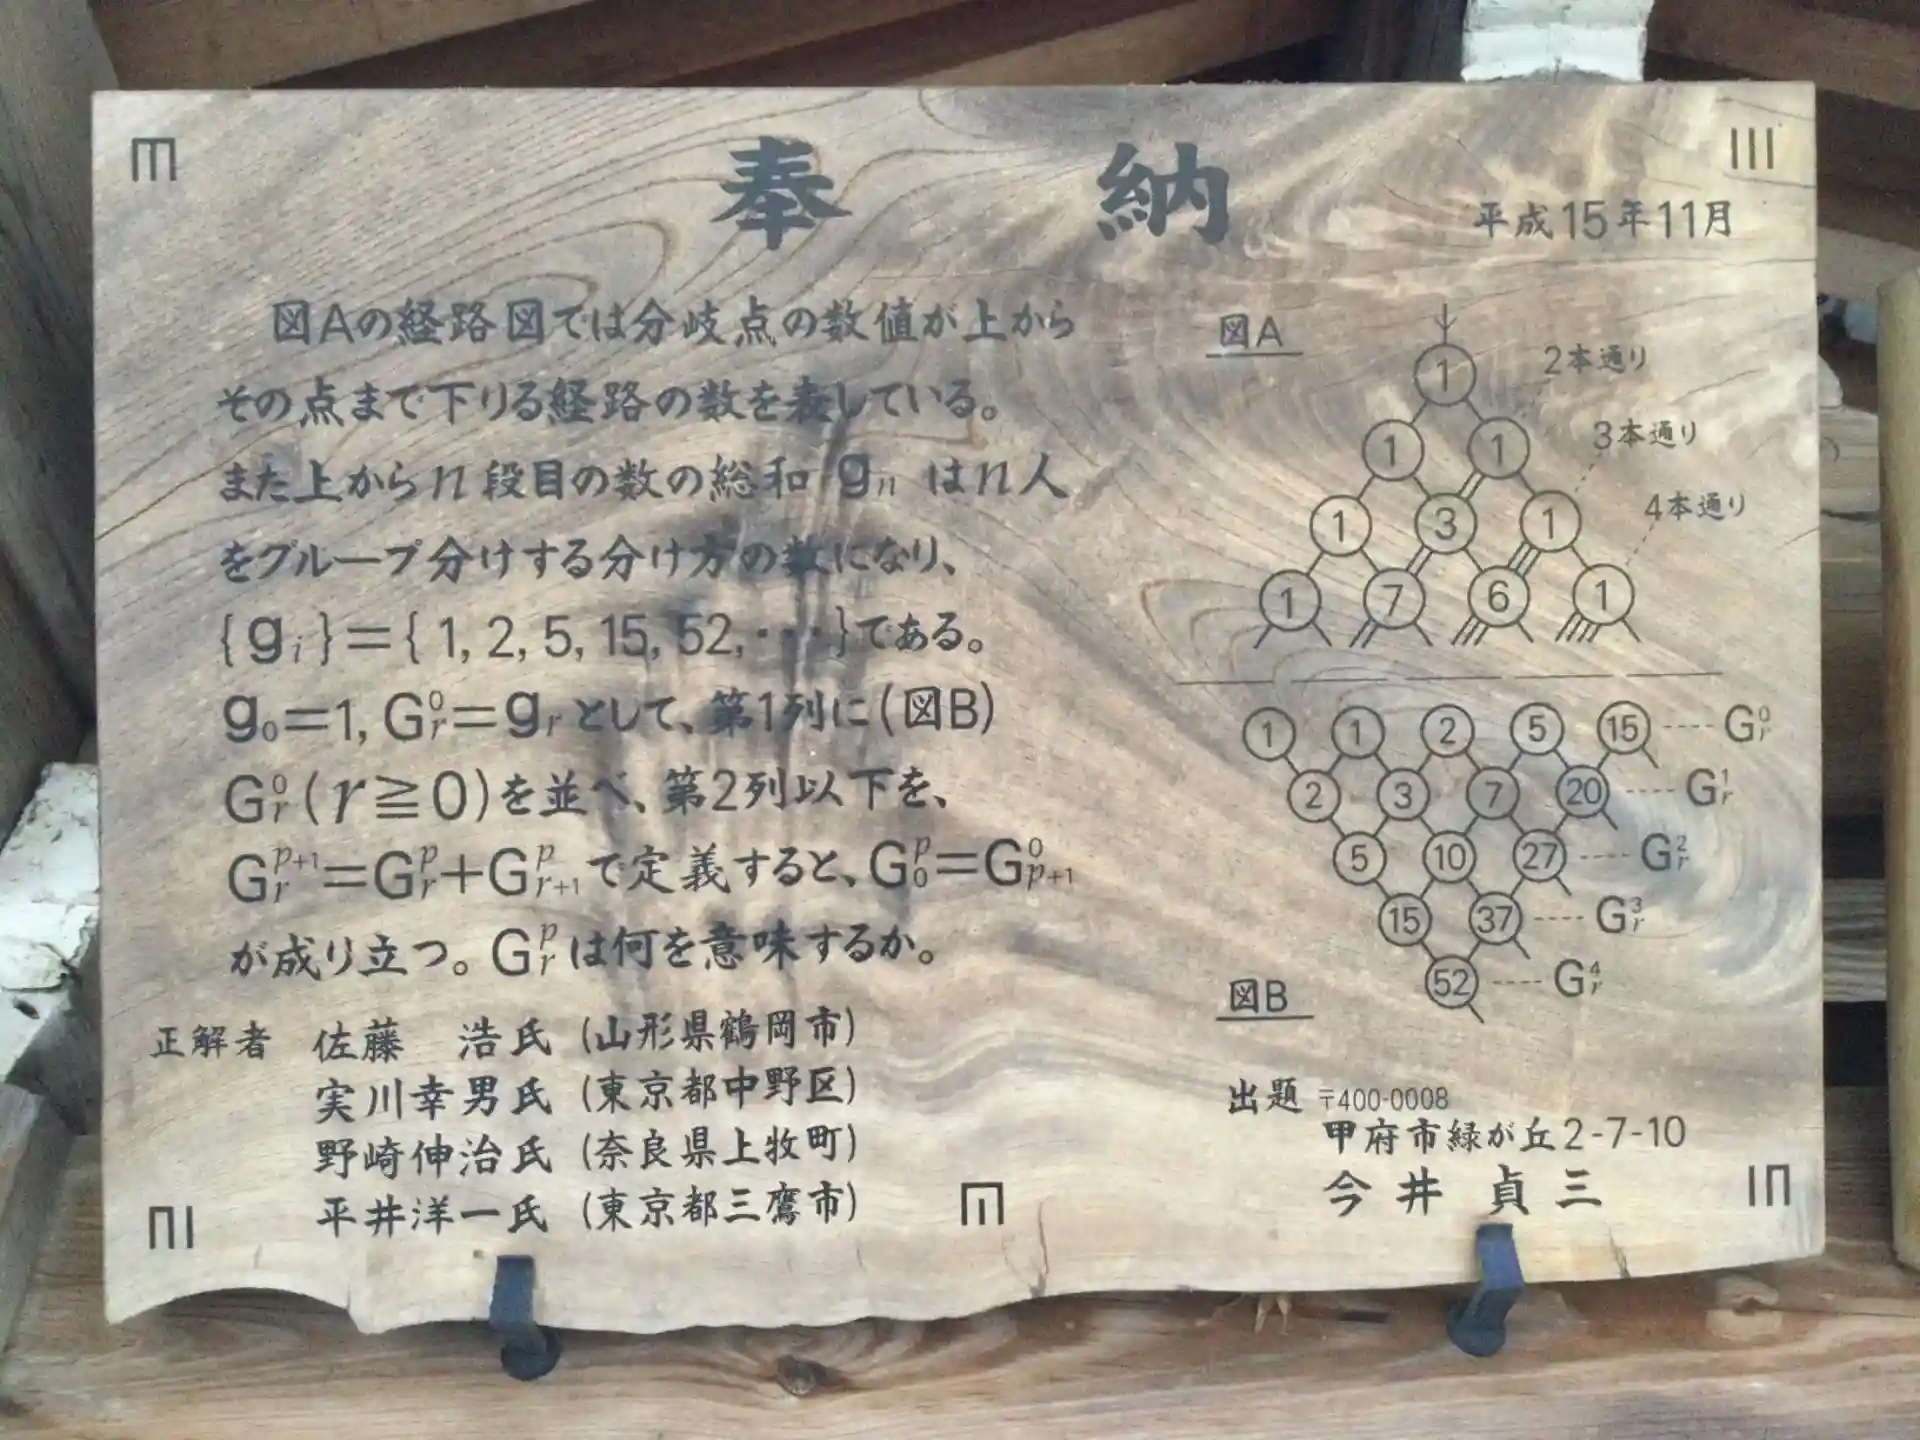 奉納
平成15年11月
図Aの経路図では分岐点の数値が上から
その点まで下りる経路の数を表している。
また上からn段目の数の総和 gₙ はn人
をグループ分けする分け方の数になり、
{gᵢ}={1, 2, 5, 15, 52, ・・・}である。
g₀=1, G⁰ᵣ=gᵣ として、第1列に(図B)
G⁰ᵣ(r≧0)を並べ、第2列以下を、
Gᵖ⁺¹ᵣ=Gᵖᵣ+Gᵖᵣ₊₁で定義すると、Gᵖ₀=G⁰ₚ₊₁
が成り立つ。Gᵖᵣは何を意味するか。
正解者 佐藤 浩氏 (山形県鶴岡市)
実川幸男氏 (東京都中野区)
野崎伸治氏 (奈良県上牧町)
平井洋一氏 (東京都三鷹市)
図A
1
2本通り
1 1
3本通り
1 3 1
4本通り
1 7 6 1
1 1 2 5 15 ---- G⁰ᵣ
2 3 7 20 ---- G¹ᵣ
5 10 27 ---- G²ᵣ
15 37 ---- G³ᵣ
52 ---- G⁴ᵣ
図B
出題 〒400-0008
甲府市緑が丘2-7-10
今井 貞三